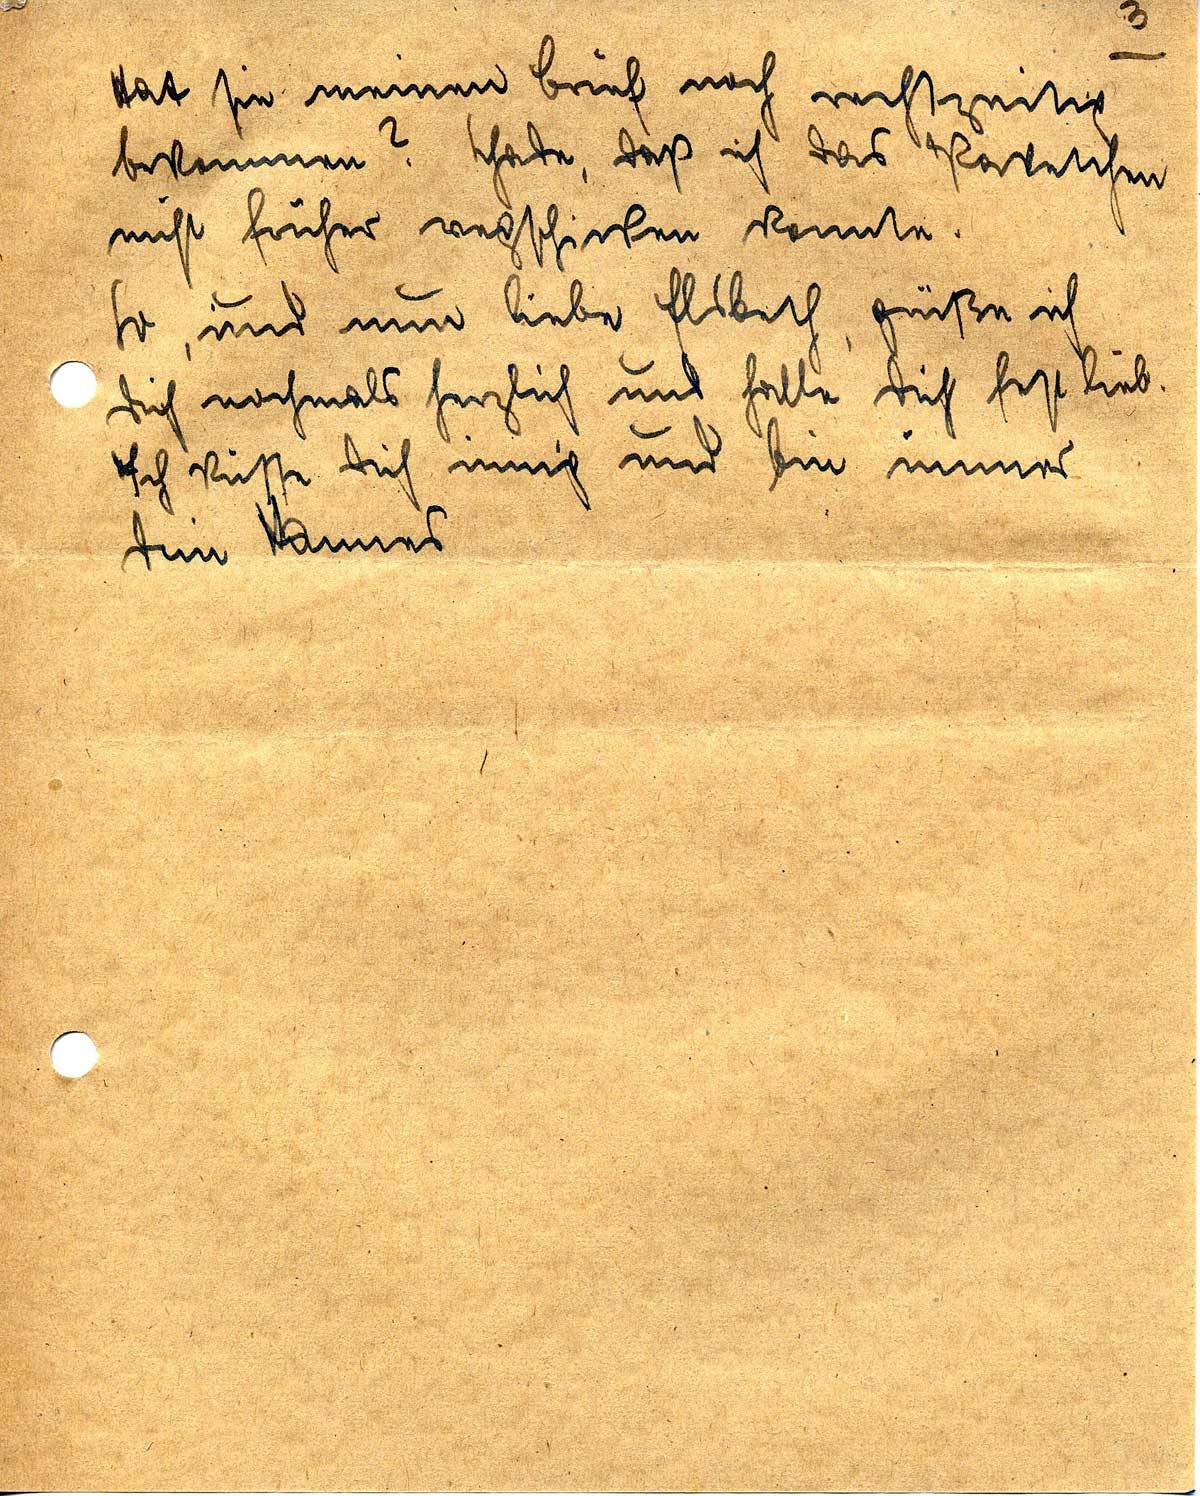 3
Hat sie meinen Brief noch rechtzeitig
bekommen? Schade, daß ich das Paketchen
nicht früher wegschicken konnte.
So, und nun liebe Elsbeth, grüße ich
Dich nochmals herzlich und halte Dich fest lieb.
Ich küsse Dich innig und bin immer
Dein Hannes